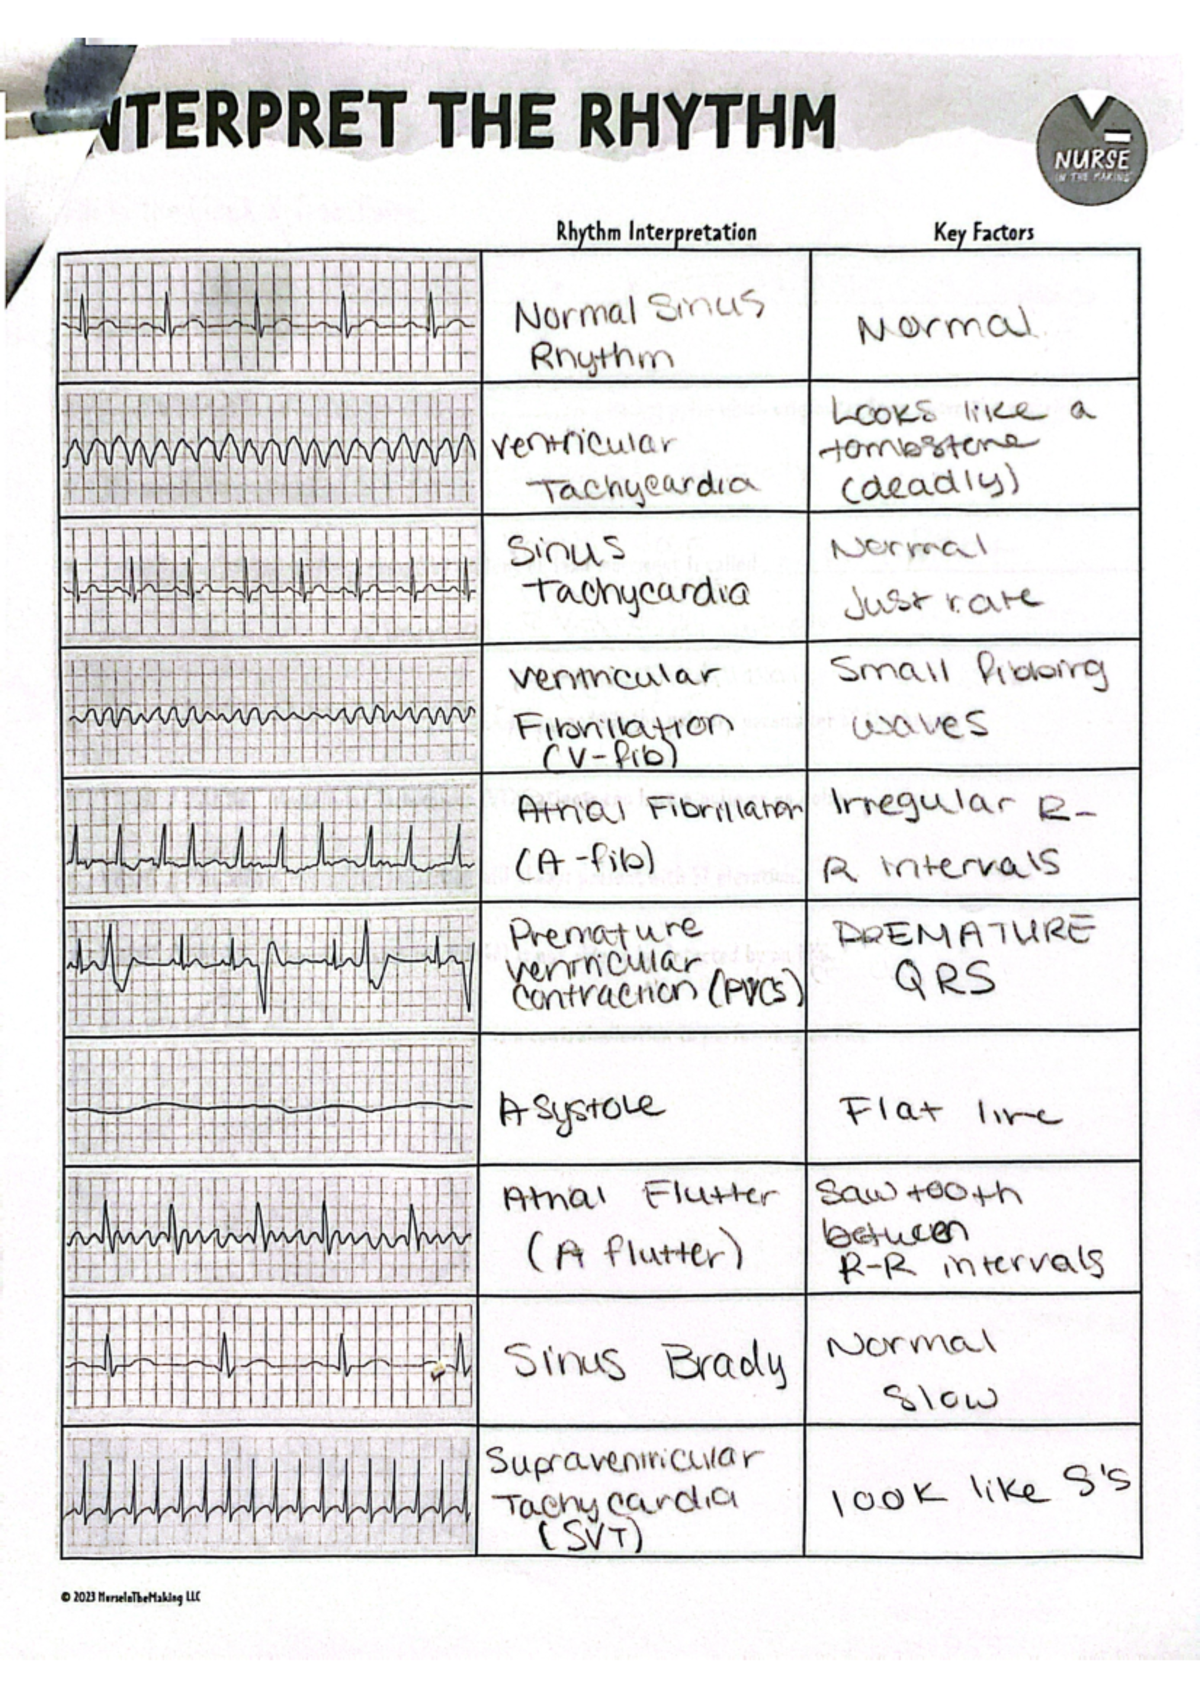 NTERPRET THE RHYTHM
NURSE
IN THE MAKING
Rhythm Interpretation
Key Factors
Normal Sinus
Rhythm
Normal
Ventricular
Tachycardia
Looks like a
tombstone
(deadly)
Sinus
Tachycardia
Normal
Just rate
Ventricular
Fibrillation
(V-fib)
Small fibbing
waves
Atrial Fibrillation
(A-fib)
Irregular R-
R intervals
Premature
ventricular
contraction (PVCs)
PREMATURE
QRS
Asystole
Flat line
Atrial Flutter
(A flutter)
Saw tooth
between
R-R intervals
Sinus Brady
Normal
Slow
Supraventricular
Tachycardia
(SVT)
look like S's
© 2023 NurseInTheMaking LLC